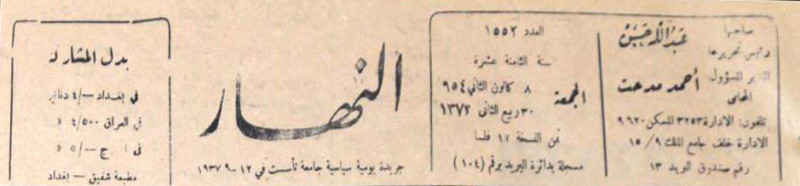 صاحبها
ورئيس تحريرها
عبدالله حسن
المدير المسؤول
المحامي
أحمد مدحت
تلفون: الادارة ٣٢٥٣ المسكن ٩٦٢٠
الادارة خلف جامع الملك ٩/ ١٥
رقم صندوق البريد ١٣
العدد ١٥٥٢
سنة الثامنة عشرة
الجمعة
٨ كانون الثاني ٩٥٤
٣٠ ربيع الثاني ١٣٧٢
ثمن النسخة ١٢ فلسا
مسجلة بدائرة البريد برقم (١٠٤)
النهار
جريدة يومية سياسية جامعة تأسست في ١٢-٩-١٩٣٧
بدل المشار
في بغداد -/٤ دنانير
في العراق ٤/٥٠٠
مطبعة شفيق - بغداد